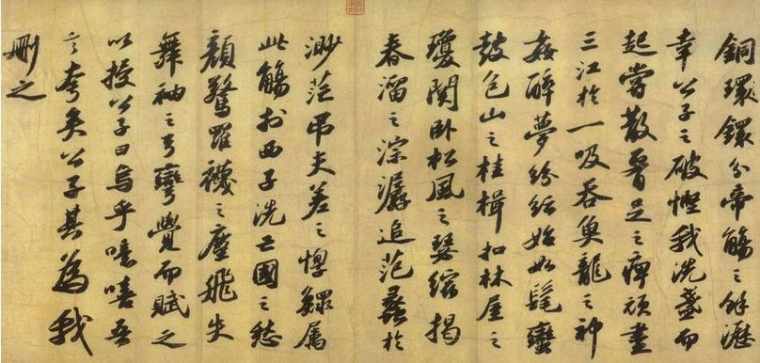 銅環鐶分帝觴之餘瀝
幸公子之破慳我洗盞而
起嘗散腰足之痺頑盡
三江於一吸吞魚龍之神
姦醉夢紛紜始如髦蠻
鼓包山之桂楫扣林屋之
瓊關卧松風之瑟縮揭
春溜之淙潺追范蠡於
渺茫吊夫差之惸鰥屬
此觴於西子洗亡國之愁
顏驚羅襪之塵飛失
舞袖之弓彎覺而賦之
以授公子曰烏乎噫嘻吾
言夸矣公子其為我
刪之